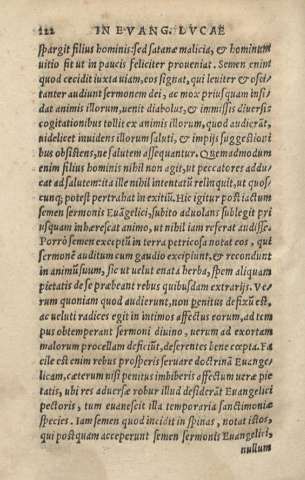 222 IN EVANG. LVCAE
spargit filius hominis: sed satanæ malicia, & hominum
uitio fit ut in paucis feliciter proueniat. Semen enim
quod cecidit iuxta uiam, eos signat, qui leuiter & osci⸗
tanter audiunt sermonem dei, ac mox priusquam insi⸗
dat animis illorum, uenit diabolus, & immissis diuersis
cogitationibus tollit ex animis illorum, quod audierāt,
uidelicet inuidens illorum saluti, & impijs suggestioni
bus obsistens, ne salutem assequantur. Quemadmodum
enim filius hominis nihil non agit, ut peccatores addu⸗
cat ad salutem: ita ille nihil intentatū relinquit, ut quos⸗
cunq; potest pertrahat in exitiū. Hic igitur post iactum
semen sermonis Euāgelici, subito aduolans sublegit pri
usquam inhærescat animo, ut nihil iam referat audisse.
Porrò semen exceptū in terra petricosa notat eos, qui
sermonē auditum cum gaudio excipiunt, & recondunt
in animū suum, sic ut uelut enata herba, spem aliquam
pietatis de se præbeant rebus quibusdam extrarijs. Ve⸗
rum quoniam quod audierunt, non penitus defixū est,
ac ueluti radices egit in intimos affectus eorum, ad tem
pus obtemperant sermoni diuino, uerum ad exortam
malorum procellam deficiūt, deserentes bene cœpta. Fa
cile est enim rebus prosperis seruare doctrinā Euange⸗
licam, cæterum nisi penitus imbiberis affectum ueræ pie
tatis, ubi res aduersæ robur illud desiderāt Euangelici
pectoris, tum euanescit illa temporaria sanctimoniæ
species. Iam semen quod incidit in spinas, notat istos,
qui postquam acceperunt semen sermonis Euangelici,
nullum